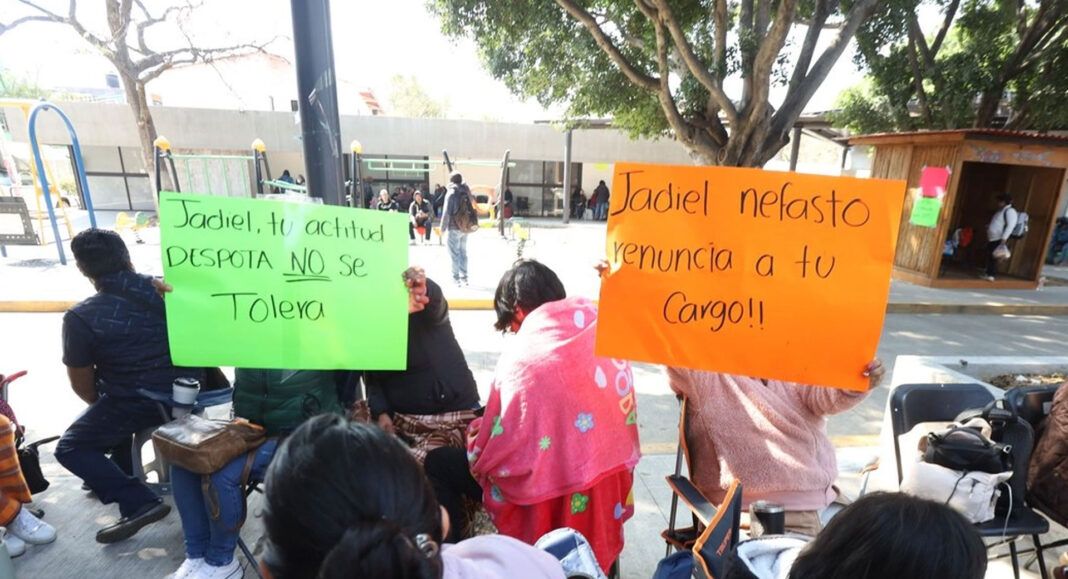 Jadiel, tu actitud
DESPOTA NO se
Tolera
Jadiel nefasto
renuncia a tu
Cargo!!